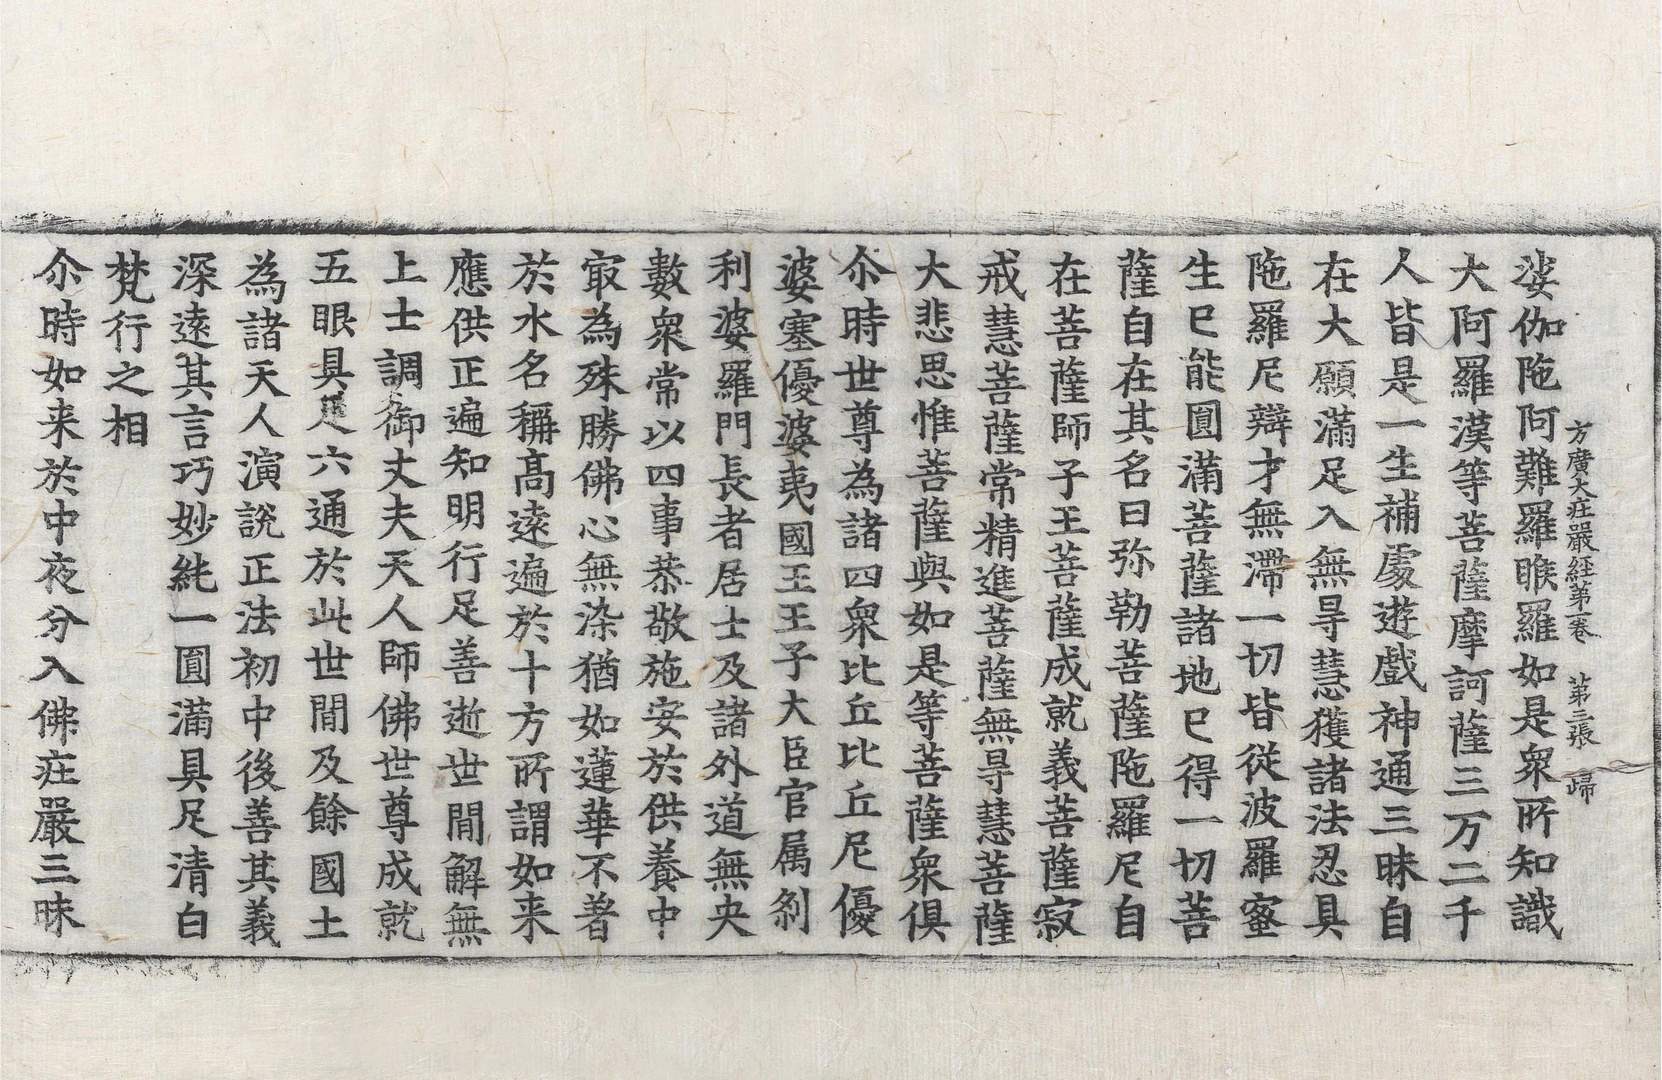 方廣大庄嚴經第一卷　第三張　歸
娑伽陁阿難羅睺羅如是衆所知識
大阿羅漢等菩薩摩訶薩三万二千
人皆是一生補處遊戲神通三昧自
在大願滿足入無㝵慧獲諸法忍具
陁羅尼辯才無滯一切皆從波羅蜜
生已能圓滿菩薩諸地已得一切菩
薩自在其名曰弥勒菩薩陁羅尼自
在菩薩師子王菩薩成就義菩薩寂
戒慧菩薩常精進菩薩無㝵慧菩薩
大悲思惟菩薩與如是等菩薩衆俱
尒時世尊為諸四衆比丘比丘尼優
婆塞優婆夷國王王子大臣官属刹
利婆羅門長者居士及諸外道無央
數衆常以四事恭敬施安於供養中
㝡為殊勝佛心無染猶如蓮華不著
於水名稱高遠遍於十方所謂如来
應供正遍知明行足善逝世間解無
上士調御丈夫天人師佛世尊成就
五眼具足六通於此世間及餘國土
為諸天人演說正法初中後善其義
深遠其言巧妙純一圓滿具足清白
梵行之相
尒時如来於中夜分入佛庄嚴三昧